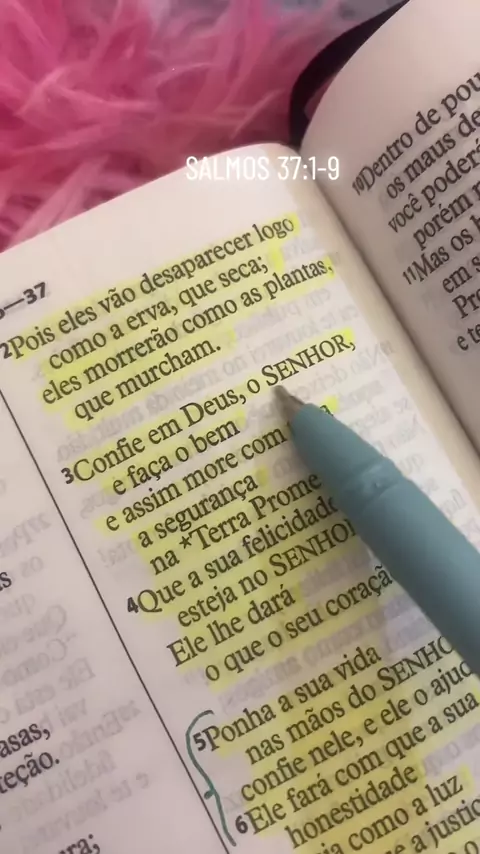 SALMOS 37:1-9
—37
2Pois eles vão desaparecer logo
como a erva, que seca;
eles morrerão como as plantas,
que murcham.
3Confie em Deus, o SENHOR,
e faça o bem
e assim more com
a segurança
na *Terra Prome
4Que a sua felicidade
esteja no SENHO
Ele lhe dará
o que o seu coraçã
5Ponha a sua vida
nas mãos do SENHO
confie nele, e ele o ajud
6Ele fará com que a sua
honestidade
como a luz
e a justiç
10Dentro de pou
os maus de
você poder
porém
11Mas os
em s
Pro
e te
asas,
teção.